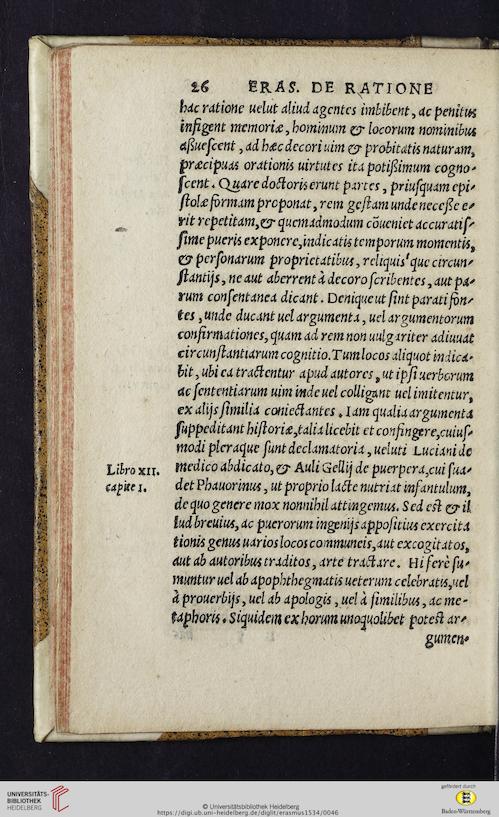 26 ERAS. DE RATIONE
hac ratione uelut aliud agentes imbibent, ac penitus
infigent memoriæ, hominum & locorum nominibus
aßuescent, ad hæc decori uim & probitatis naturam,
præcipuas orationis uirtutes ita potißimum cogno-
scent. Quare doctoris erunt partes, priusquam epi-
stolæ formam proponat, rem gestam unde necesse e-
rit repetitam, & quemadmodum cōueniet accuratis-
sime pueris exponere, indicatis temporum momentis,
& personarum proprietatibus, reliquis'que circun-
stantijs, ne aut aberrent à decoro scribentes, aut pa-
rum consentanea dicant. Denique ut sint parati fon-
tes, unde ducant uel argumenta, uel argumentorum
confirmationes, quam ad rem non uulgariter adiuuat
circunstantiarum cognitio. Tum locos aliquot indica-
bit, ubi ea tractentur apud autores, ut ipsi uerborum
ac sententiarum uim inde uel colligant uel imitentur,
ex alijs similia coniectantes. Iam qualia argumenta
suppeditant historiæ, talia licebit et confingere, cuius-
modi pleraque sunt declamatoria, ueluti Luciani de
Libro XII.
capite I.
medico abdicato, & Auli Gellij de puerpera, cui sua-
det Phauorinus, ut proprio lacte nutriat infantulum,
de quo genere mox nonnihil attingemus. Sed est & il
lud breuius, ac puerorum ingenijs appositius exercita
tionis genus uarios locos communeis, aut excogitatos,
aut ab autoribus traditos, arte tractare. Hi ferè su-
muntur uel ab apophthegmatis ueterum celebratis, uel
à prouerbijs, uel ab apologis, uel à similibus, ac me-
taphoris. Siquidem ex horum unoquolibet potest ar-
gumen-
UNIVERSITÄTS-
BIBLIOTHEK
HEIDELBERG
© Universitätsbibliothek Heidelberg
https://digi.ub.uni-heidelberg.de/diglit/erasmus1534/0046
gefördert durch
Baden-Württemberg